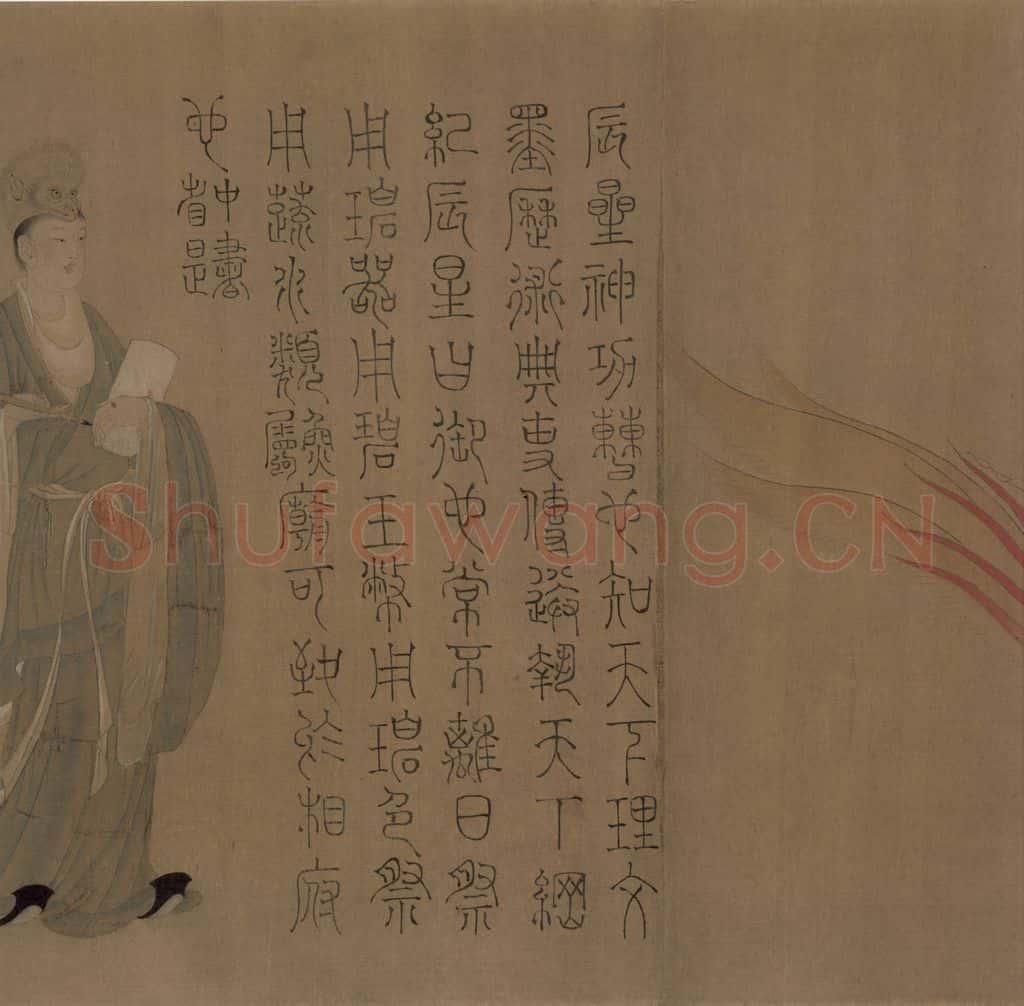 辰星神功曹也知天下理文
墨歷術典吏傳送執天下綱
紀辰星日御也常不離日祭
用碧器用碧玉幣用碧色祭
用蔬水類魚屬廟可致於相府
也中書省是
Shufawang.CN